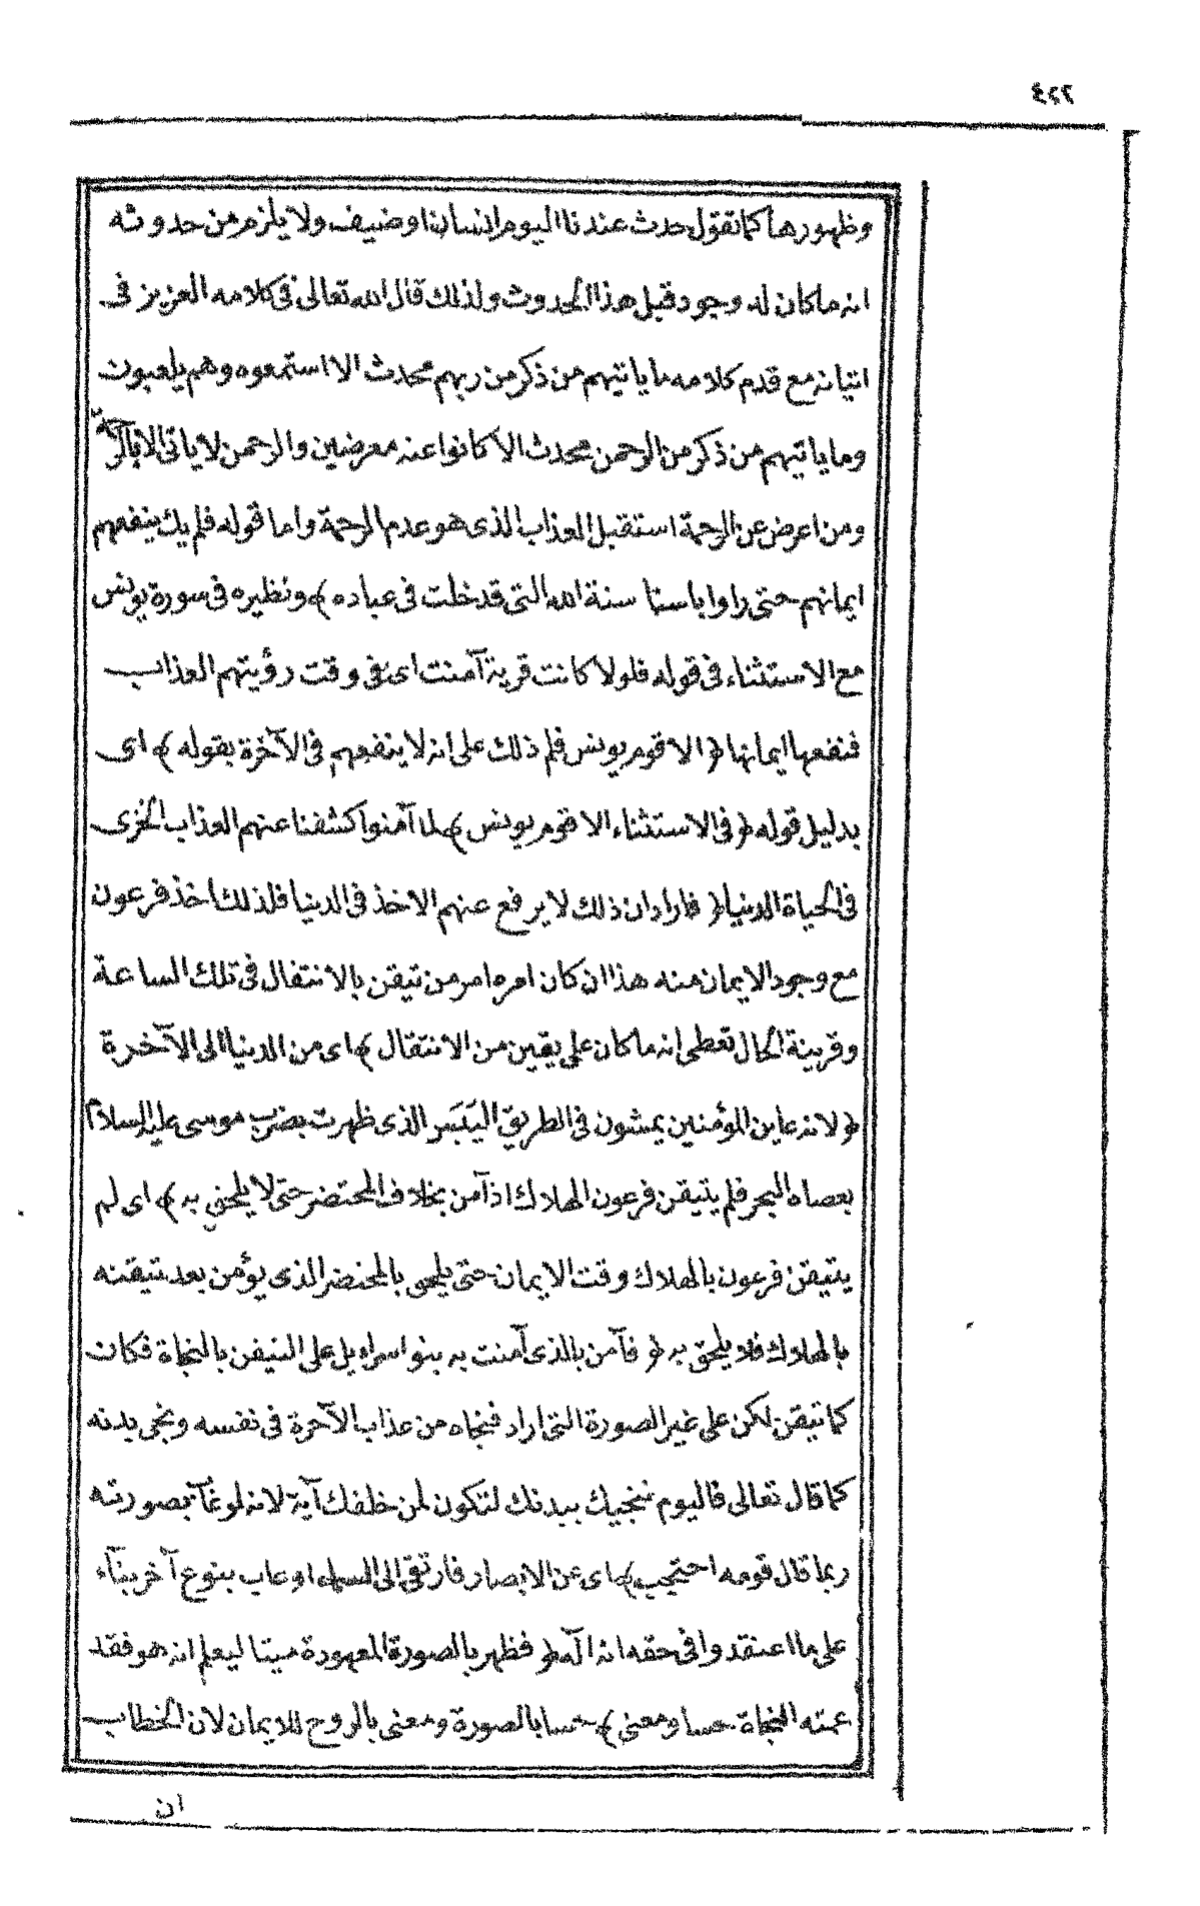 ٤٢٢
وظهورها كما تقول حدث عندنا اليوم انسان او ضيف ولا يلزم من حدوثه
انه ما كان له وجود قبل هذا الحدوث ولذلك قال الله تعالى فى كلامه العزيز فى
اتيانه مع قدم كلامه ما ياتيهم من ذكر من ربهم محدث الا استمعوه وهم يلعبون
وما ياتيهم من ذكر من الرحمن محدث الا كانوا عنه معرضين والرحمن لا ياتى الا بالرحمة
ومن اعرض عن الرحمة استقبل العذاب الذى هو عدم الرحمة واما قوله فلم يك ينفعهم
ايمانهم حتى راوا باسنا سنة الله التى قد خلت فى عباده ﴾ ونظيره فى سورة يونس
مع الاستثناء فى قوله فلولا كانت قرية آمنت اى فى وقت رؤيتهم العذاب
فنفعها ايمانها ﴿ الا قوم يونس فلم ذلك على انه لا ينفعهم فى الآخرة بقوله ﴾ اى
بدليل قوله ﴿ فى الاستثناء الا قوم يونس ﴾ لما آمنوا كشفنا عنهم العذاب الخزى
فى الحياة الدنيا ﴿ فاراد ان ذلك لا يرفع عنهم الاخذ فى الدنيا فلذلك اخذ فرعون
مع وجود الايمان منه هذا ان كان امره امر من تيقن بالانتقال فى تلك الساعة
وقرينة الحال تعطى انه ما كان على يقين من الانتقال ﴾ اى من الدنيا الى الآخرة
﴿ لانه عاين المؤمنين يمشون فى الطريق اليَبَس الذى ظهرت بضرب موسى عليه السلام
بعصاه البحر فلم يتيقن فرعون الهلاك اذ آمن بخلاف المحتضر حتى لا يلحق به ﴾ اى لم
يتيقن فرعون بالهلاك وقت الايمان حتى يلحق بالمحتضر الذى يؤمن بعد تيقنه
بالهلاك فلا يلحق به ﴿ فآمن بالذى آمنت به بنو اسرايل على التيقن بالنجاة فكان
كما تيقن لكن على غير الصورة التى اراد فنجاه من عذاب الآخرة فى نفسه ونجى بدنه
كما قال تعالى فاليوم ننجيك ببدنك لتكون لمن خلفك آية لانه لو غاب بصورته
ربما قال قومه احتجب ﴾ اى عن الابصار فارتقى الى السماء او غاب بنوع آخر بنآء
على ما اعتقدوا فى حقه انه الٓه ﴿ فظهر بالصورة المعهودة ميتا ليعلم انه هو فقد
عمته النجاة حسا ومعنى ﴾ حسا بالصورة ومعنى بالروح للايمان لان الخطاب
ان